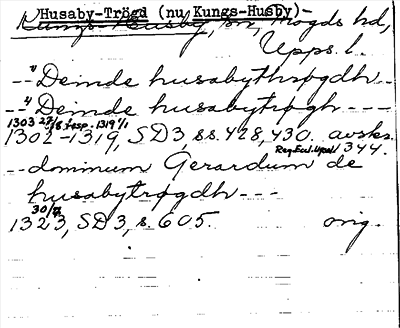 Husaby-Trögd (nu Kungs-Husby)-
Kungs-Husby, sn, Trögds hd,
Upps. l.
--"Deinde husabythrøgdh--
--"Deinde husabytrøgh---
1303 27/8 1319 1/1
1302-1319, SD3, ss. 428, 430. avskr.
Reg. Eccl. Upsal 344.
--dominum Gerardum de
husabytrøgdh---
30/7
1323, SD3, s. 605. orig.